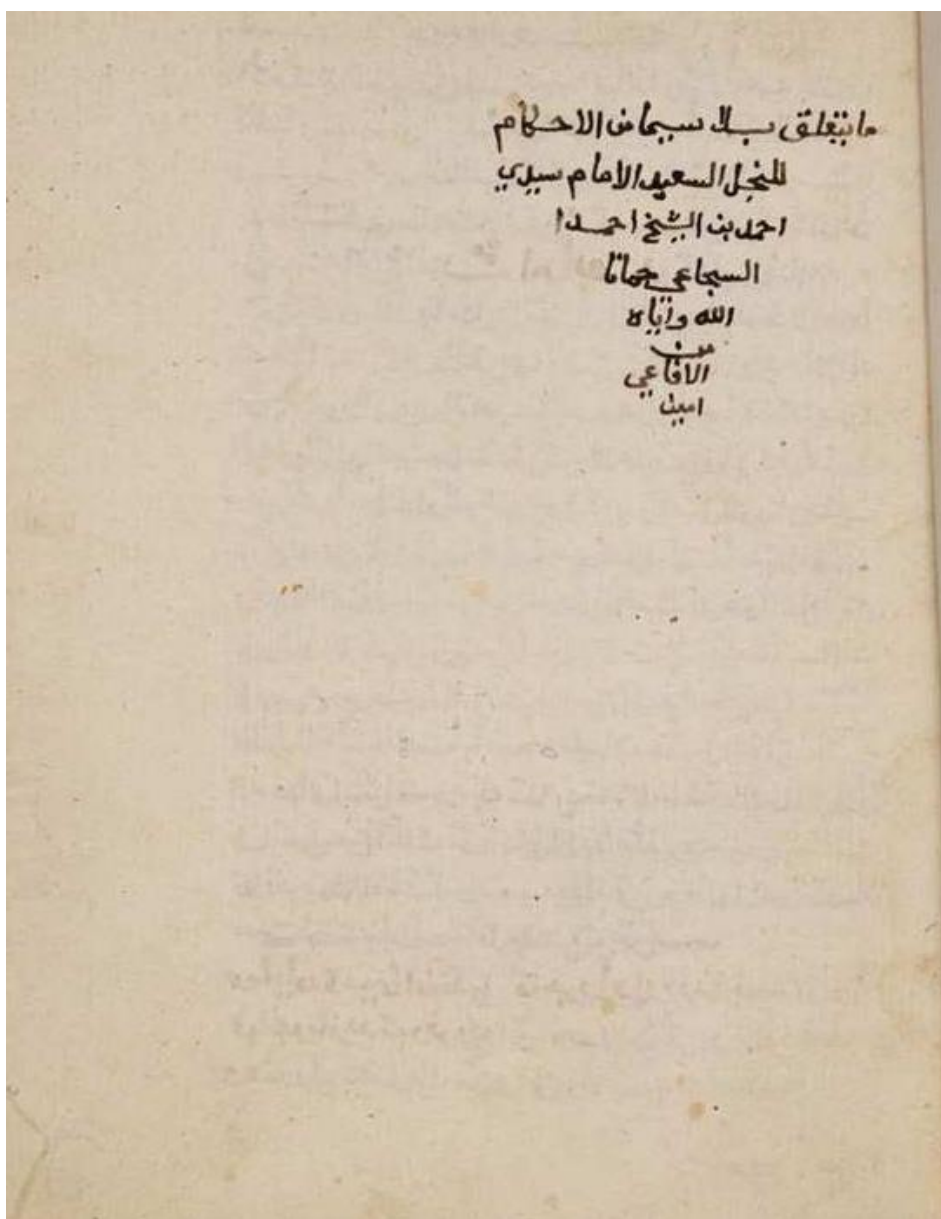 ما يتعلق بلا سيما من الاحكام
للنجل السعيد الامام سيدي
احمد بن الشيخ احمد
السجاعي حمانا
الله واياه
من
الافاعي
امين